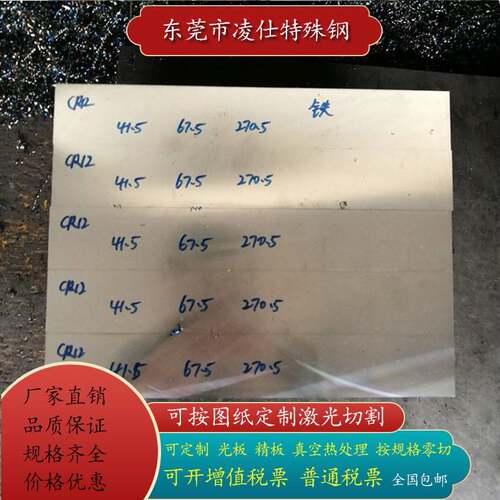 东莞市凌仕特殊钢
CR12 41.5 67.5 270.5 铁
CR12 41.5 67.5 270.5
CR12 41.5 67.5 270.5
CR12 41.5 67.5 270.5
CR12 41.5 67.5 270.5
厂家直销
品质保证
规格齐全
价格优惠
可按图纸定制激光切割
可定制 光板 精板 真空热处理 按规格零切
可开增值税票 普通税票 全国包邮